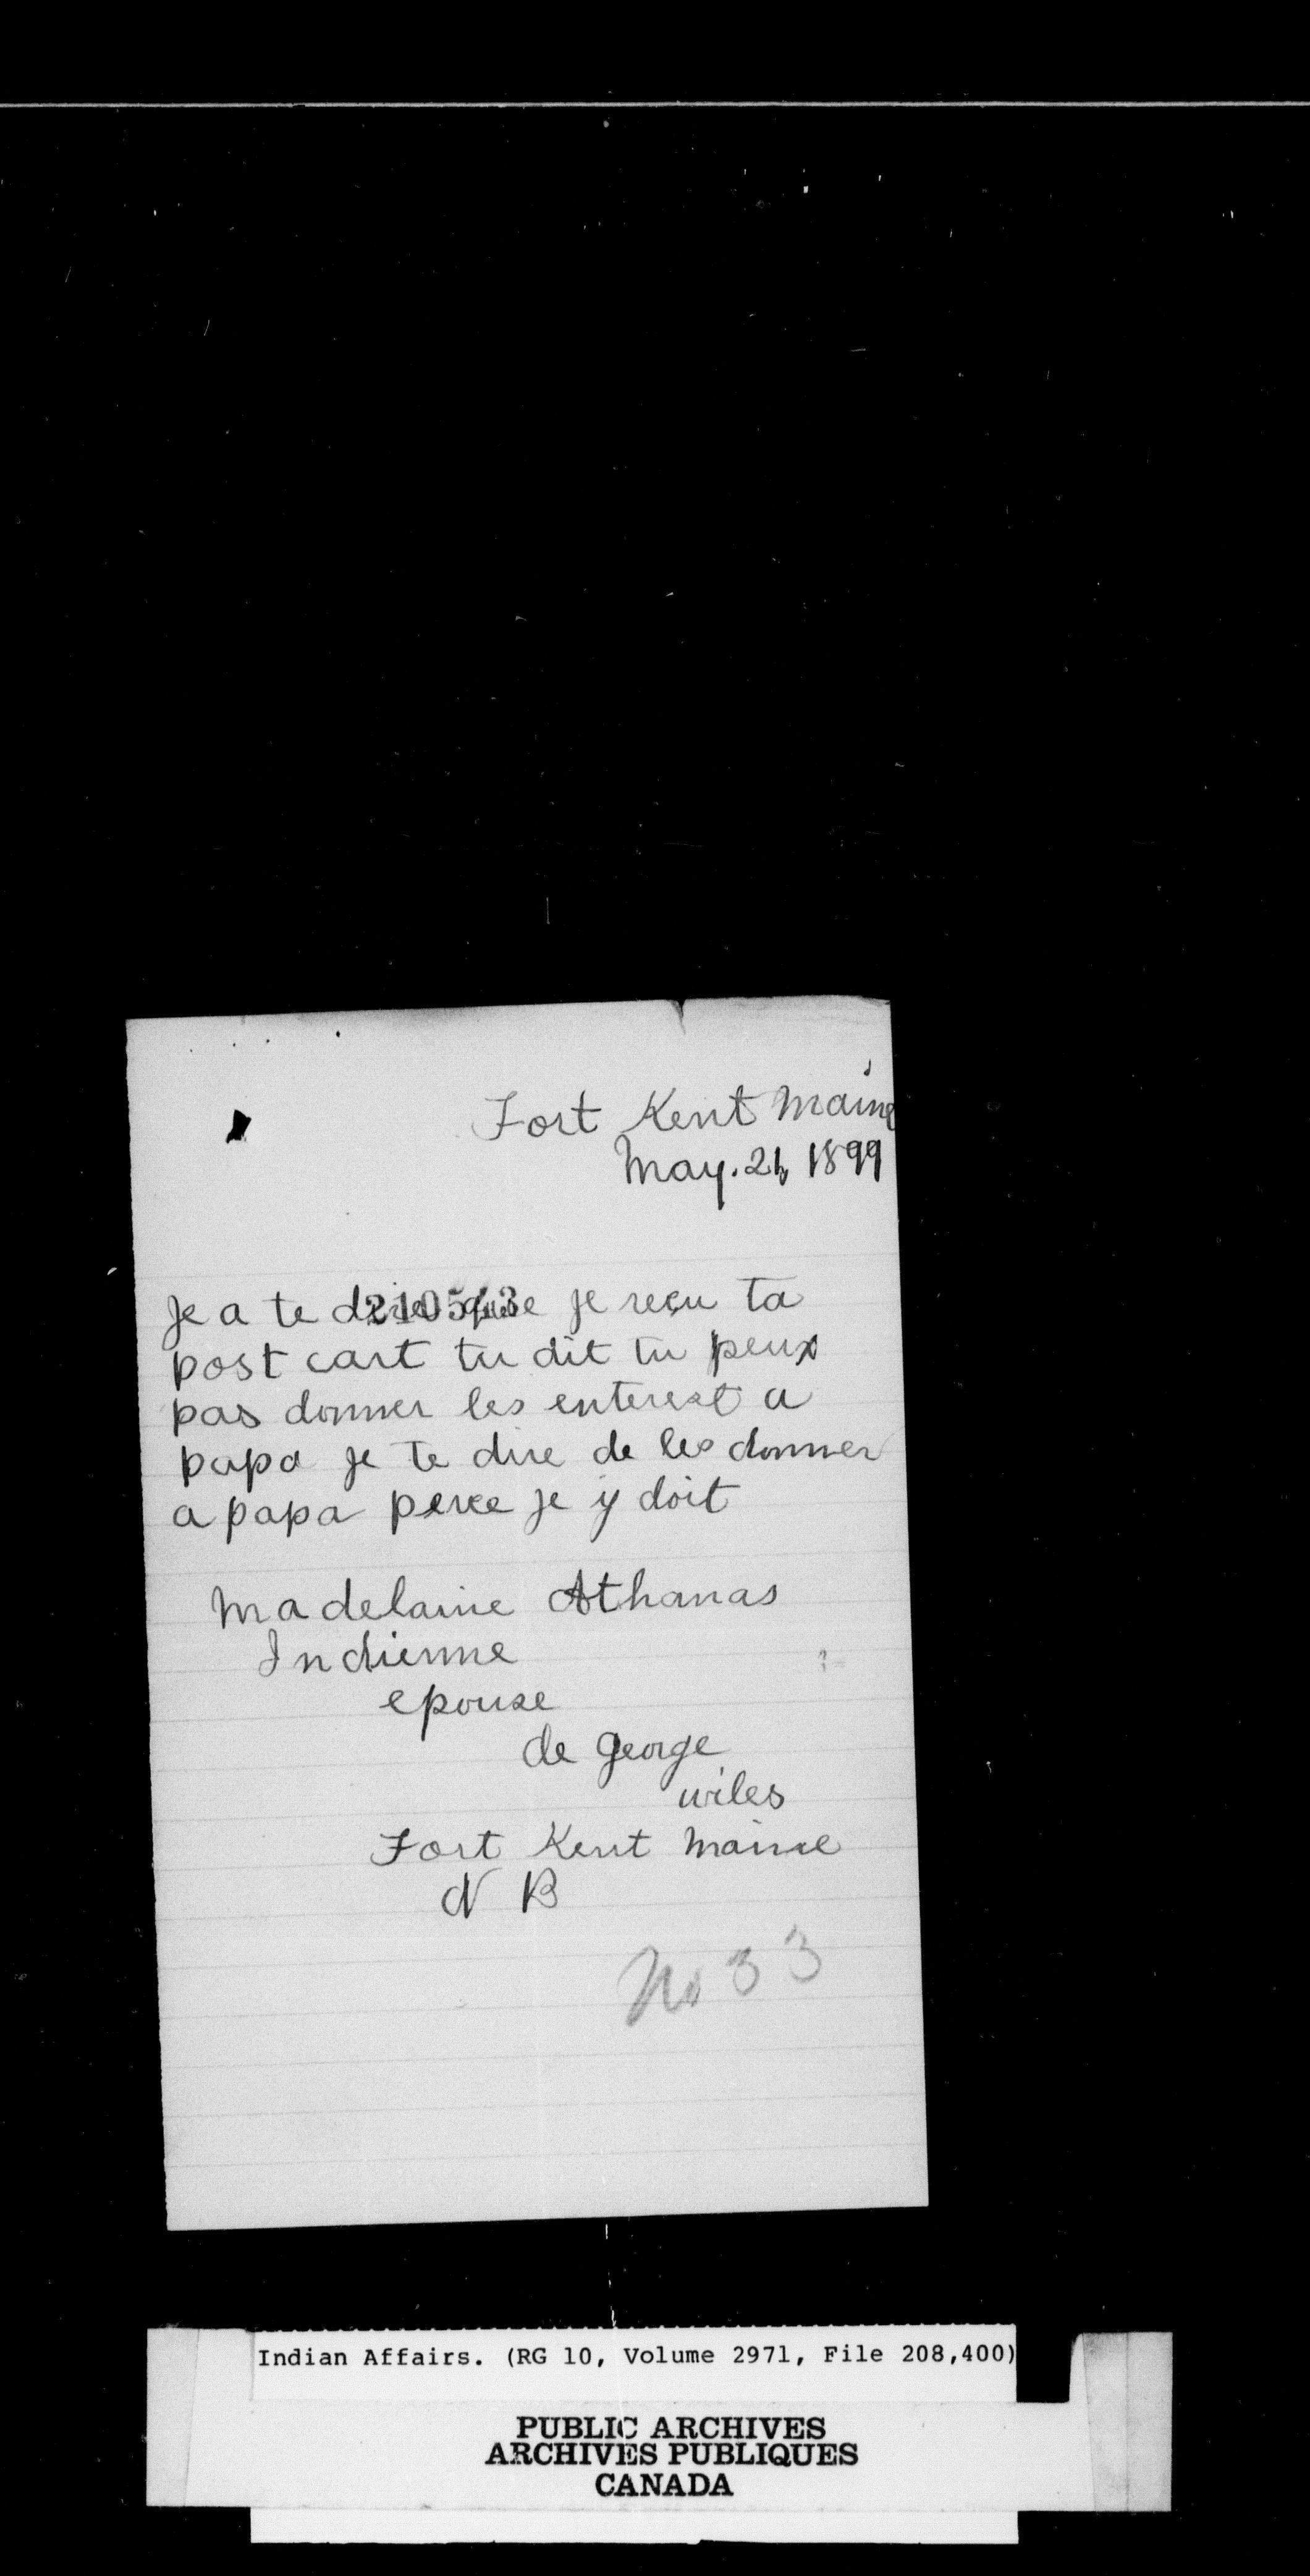 Fort Kent Maine
May. 21, 1899
Je a te dire que je reçu ta
210543
post cart tu dit tu peux
pas donner les enterest a
papa je te dire de les donner
a papa perce je y doit
Madelaine Athanas
Indienne
epouse
de george
wiles
Fort Kent Maine
N B
No 33
Indian Affairs. (RG 10, Volume 2971, File 208,400)
PUBLIC ARCHIVES
ARCHIVES PUBLIQUES
CANADA